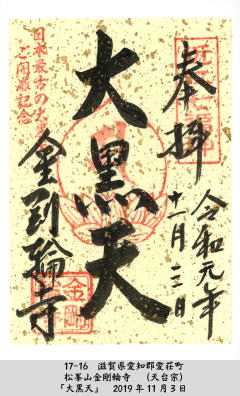 奉拝
令和元年
十一月三日
大黒天
日本最古の大黒
ご開扉記念
金剛輪寺
17-16　滋賀県愛知郡愛荘町
松峯山金剛輪寺　（天台宗）
「大黒天」　2019年11月3日